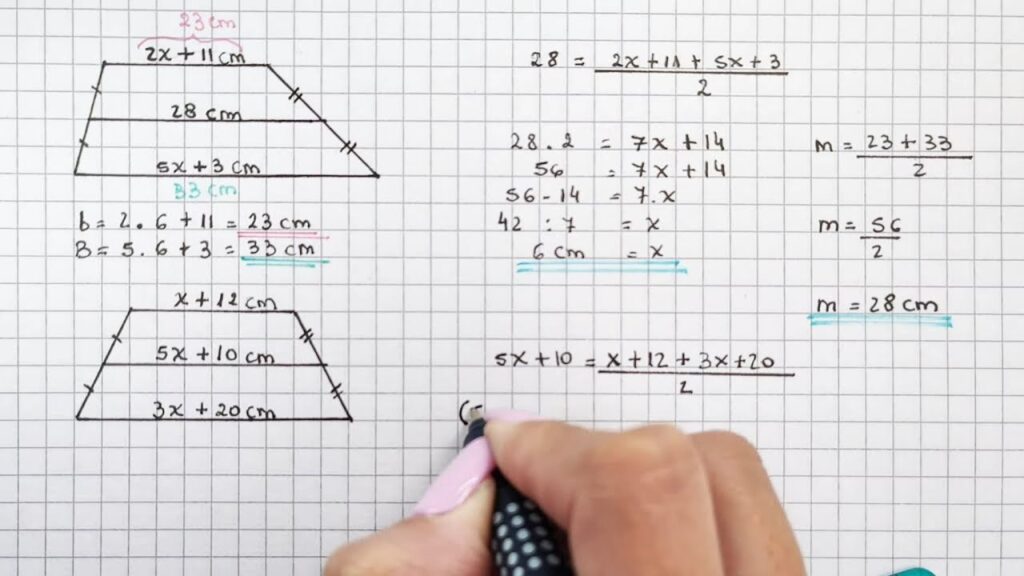 23 cm
2x + 11 cm
28 cm
5x + 3 cm
33 cm
b = 2 . 6 + 11 = 23 cm
B = 5 . 6 + 3 = 33 cm
28 = 2x + 11 + 5x + 3
2
28 . 2 = 7x + 14
56 = 7x + 14
56 - 14 = 7.x
42 : 7 = x
6 cm = x
m = 23 + 33
2
m = 56
2
m = 28 cm
x + 12 cm
5x + 10 cm
3x + 20 cm
5x + 10 = x + 12 + 3x + 20
2
(